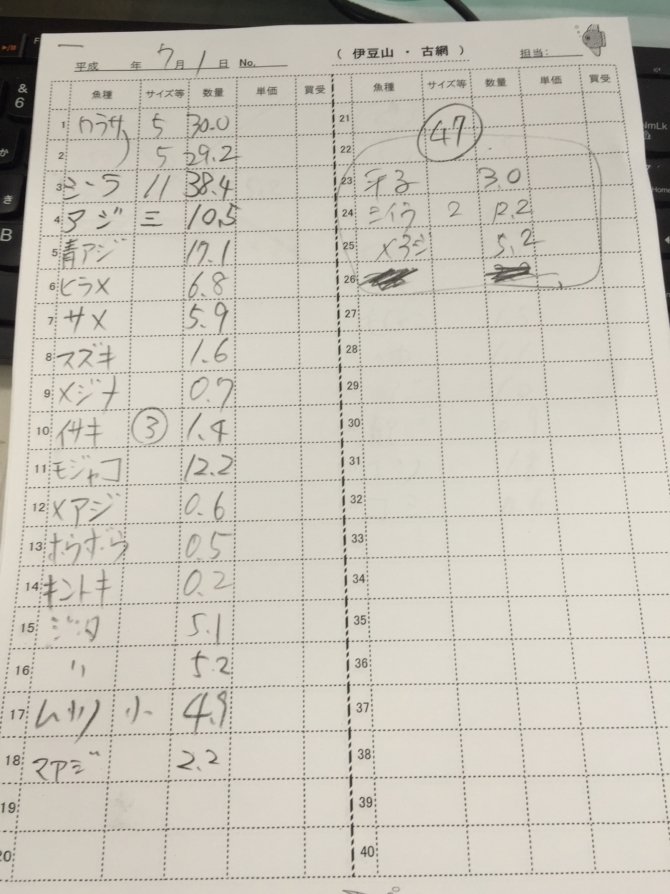 平成 年 7月 1日 No.
( 伊豆山 ・ 古網 ) 担当:
魚種 サイズ等 数量 単価 買受
1 ワラサ 5 30.0
2 5 29.2
3 シーラ 11 38.4
4 アジ 三 10.5
5 青アジ 17.1
6 ヒラメ 6.8
7 サメ 5.9
8 スズキ 1.6
9 メジナ 0.7
10 イサキ ③ 1.4
11 モジャコ 12.2
12 メアジ 0.6
13 ホウボウ 0.5
14 キントキ 0.2
15 ジンタ 5.1
16 〃 5.2
17 ムツ 小 4.9
18 マアジ 2.2
19
20
魚種 サイズ等 数量 単価 買受
21
47
22
23 3.0
24 シイラ 2
25 5.2
26
27
28
29
30
31
32
33
34
35
36
37
38
39
40